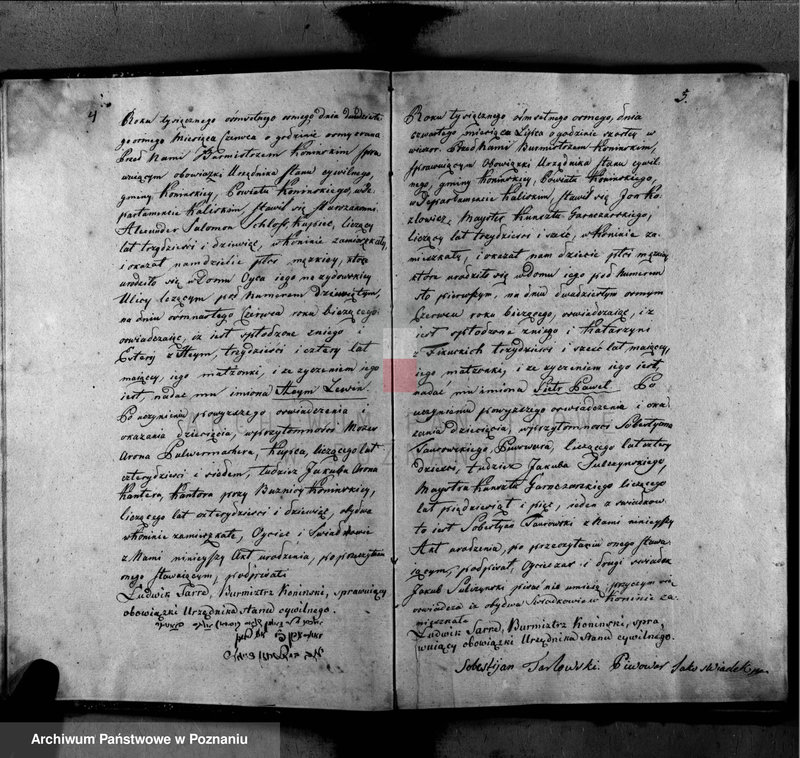 4
Roku tysięcznego ośmsetnego osmego dnia dwudzieste
go osmego Miesiąca Czerwca o godzinie osmey zrana
Przed Nami Burmistrzem Konińskim spra
wuiącym obowiązki Urzędnika Stanu cywilnego,
gminy Konińskiey, Powiatu Konińskiego, w De
partamencie Kaliskim, stawił się Starozakonny
Alexander Salomon Schloss, Kupiec, liczący
lat trzydzieści i dziewięć, w Koninie zamieszkały,
i okazał nam dziecie płci męzkiey, które
urodziło się w Domu Oyca iego na żydowskiey
Ulicy leżącym pod Numerem dziewiątym,
na dniu osmnastego Czerwca roku bieżącego
oswiadczaiąc, iż iest spłodzone z niego i
Estery z Heym, trzydzieści i cztery lat
maiący, iego małżonki, i że życzeniem iego
iest nadać mu imiona Heym Lewin.
Po uczynieniu powyższego oswiadczenia i
okazania dziecięcia, w przytomności Mozes
Arona Pulwermachera, Kupca, liczącego lat
czterydzieści i siedem, tudzież Jakuba Arona
Kantora, Kantora przy Buznicy Konińskiey,
liczącego lat czterydzieści i dziewięć, obydwa
w Koninie zamieszkałe, Oyciec i Swiadkowie
z Nami ninieyszy Akt urodzenia, po przeczytaniu
onego stawaiącym, podpisali
Ludwik Sarré, Burmistrz Koniński, sprawuiący
obowiązki Urzędnika Stanu cywilnego.
5.
Roku tysięcznego ośmsetnego osmego, dnia
czwartego miesiąca Lipca o godzinie szostey w
wieczor. Przed Nami Burmistrzem Konińskim,
sprawuiącym Obowiązki Urzędnika Stanu cywil
nego, gminy Konińskiey, Powiatu Konińskiego,
w Departamencie Kaliskim, stawił się Jan Ko
złowicz, Mayster Kunsztu Garnczarskiego,
liczący lat trzydzieści i sześć, w Koninie za
mieszkały, i okazał nam dziecie płci męzkiey
które urodziło się w Domu iego pod Numerem
sto pierwszym, na dniu dwadziestym osmym
Czerwca roku bieżącego, oswiadczaiąc, iż
iest spłodzone z niego i Katarzyny
z trzydzieści i sześć lat maiącey,
iego małżonki, i że życzeniem iego iest,
nadać mu imiona Piotr Paweł. Po
uczynieniu powyższego oswiadczenia i oka
zania dziecięcia, w przytomności Sobestyana
Piwowara, liczącego lat cztery
dzieści, tudzież Jakuba Sulczynskiego,
Maystra Kunsztu Garnczarskiego liczącego
lat pięćdziesiąt i pięć, ieden z swiadkow
to iest Sobestyan z Nami ninieyszy
Akt urodzenia, po przeczytaniu onego stawa
iącym, podpisał, Oyciec zaś i drugi swiadek
Jakub Sulczynski pisać nie umieią, przyczym się
oswiadcza iż obydwa Swiadkowie w Koninie za
mieszkałe
Ludwik Sarré, Burmistrz Koniński, spra
wuiący obowiązki Urzędnika Stanu cywilnego.
Sobestijan Tarłowski. Piwowar Jako swiadek
Archiwum Państwowe w Poznaniu